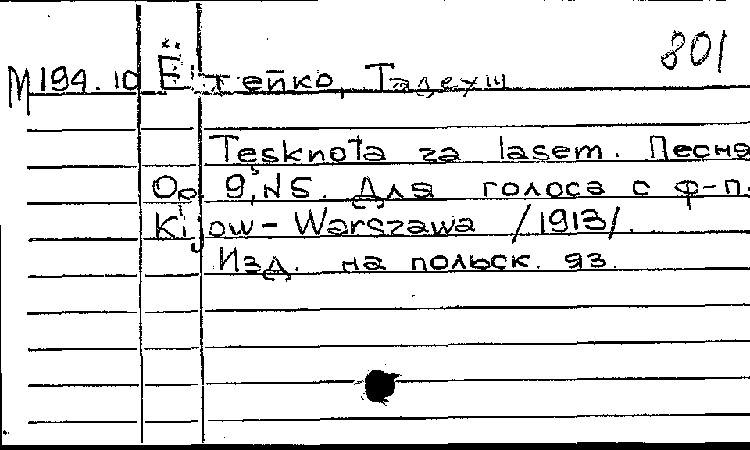 801
М194.10 Ётейко, Тадеуш
Tesknota za lasem. Песня
Op. 9, N5. Для голоса с ф-п.
Kijow - Warszawa /1913/.
Изд. на польск. яз.